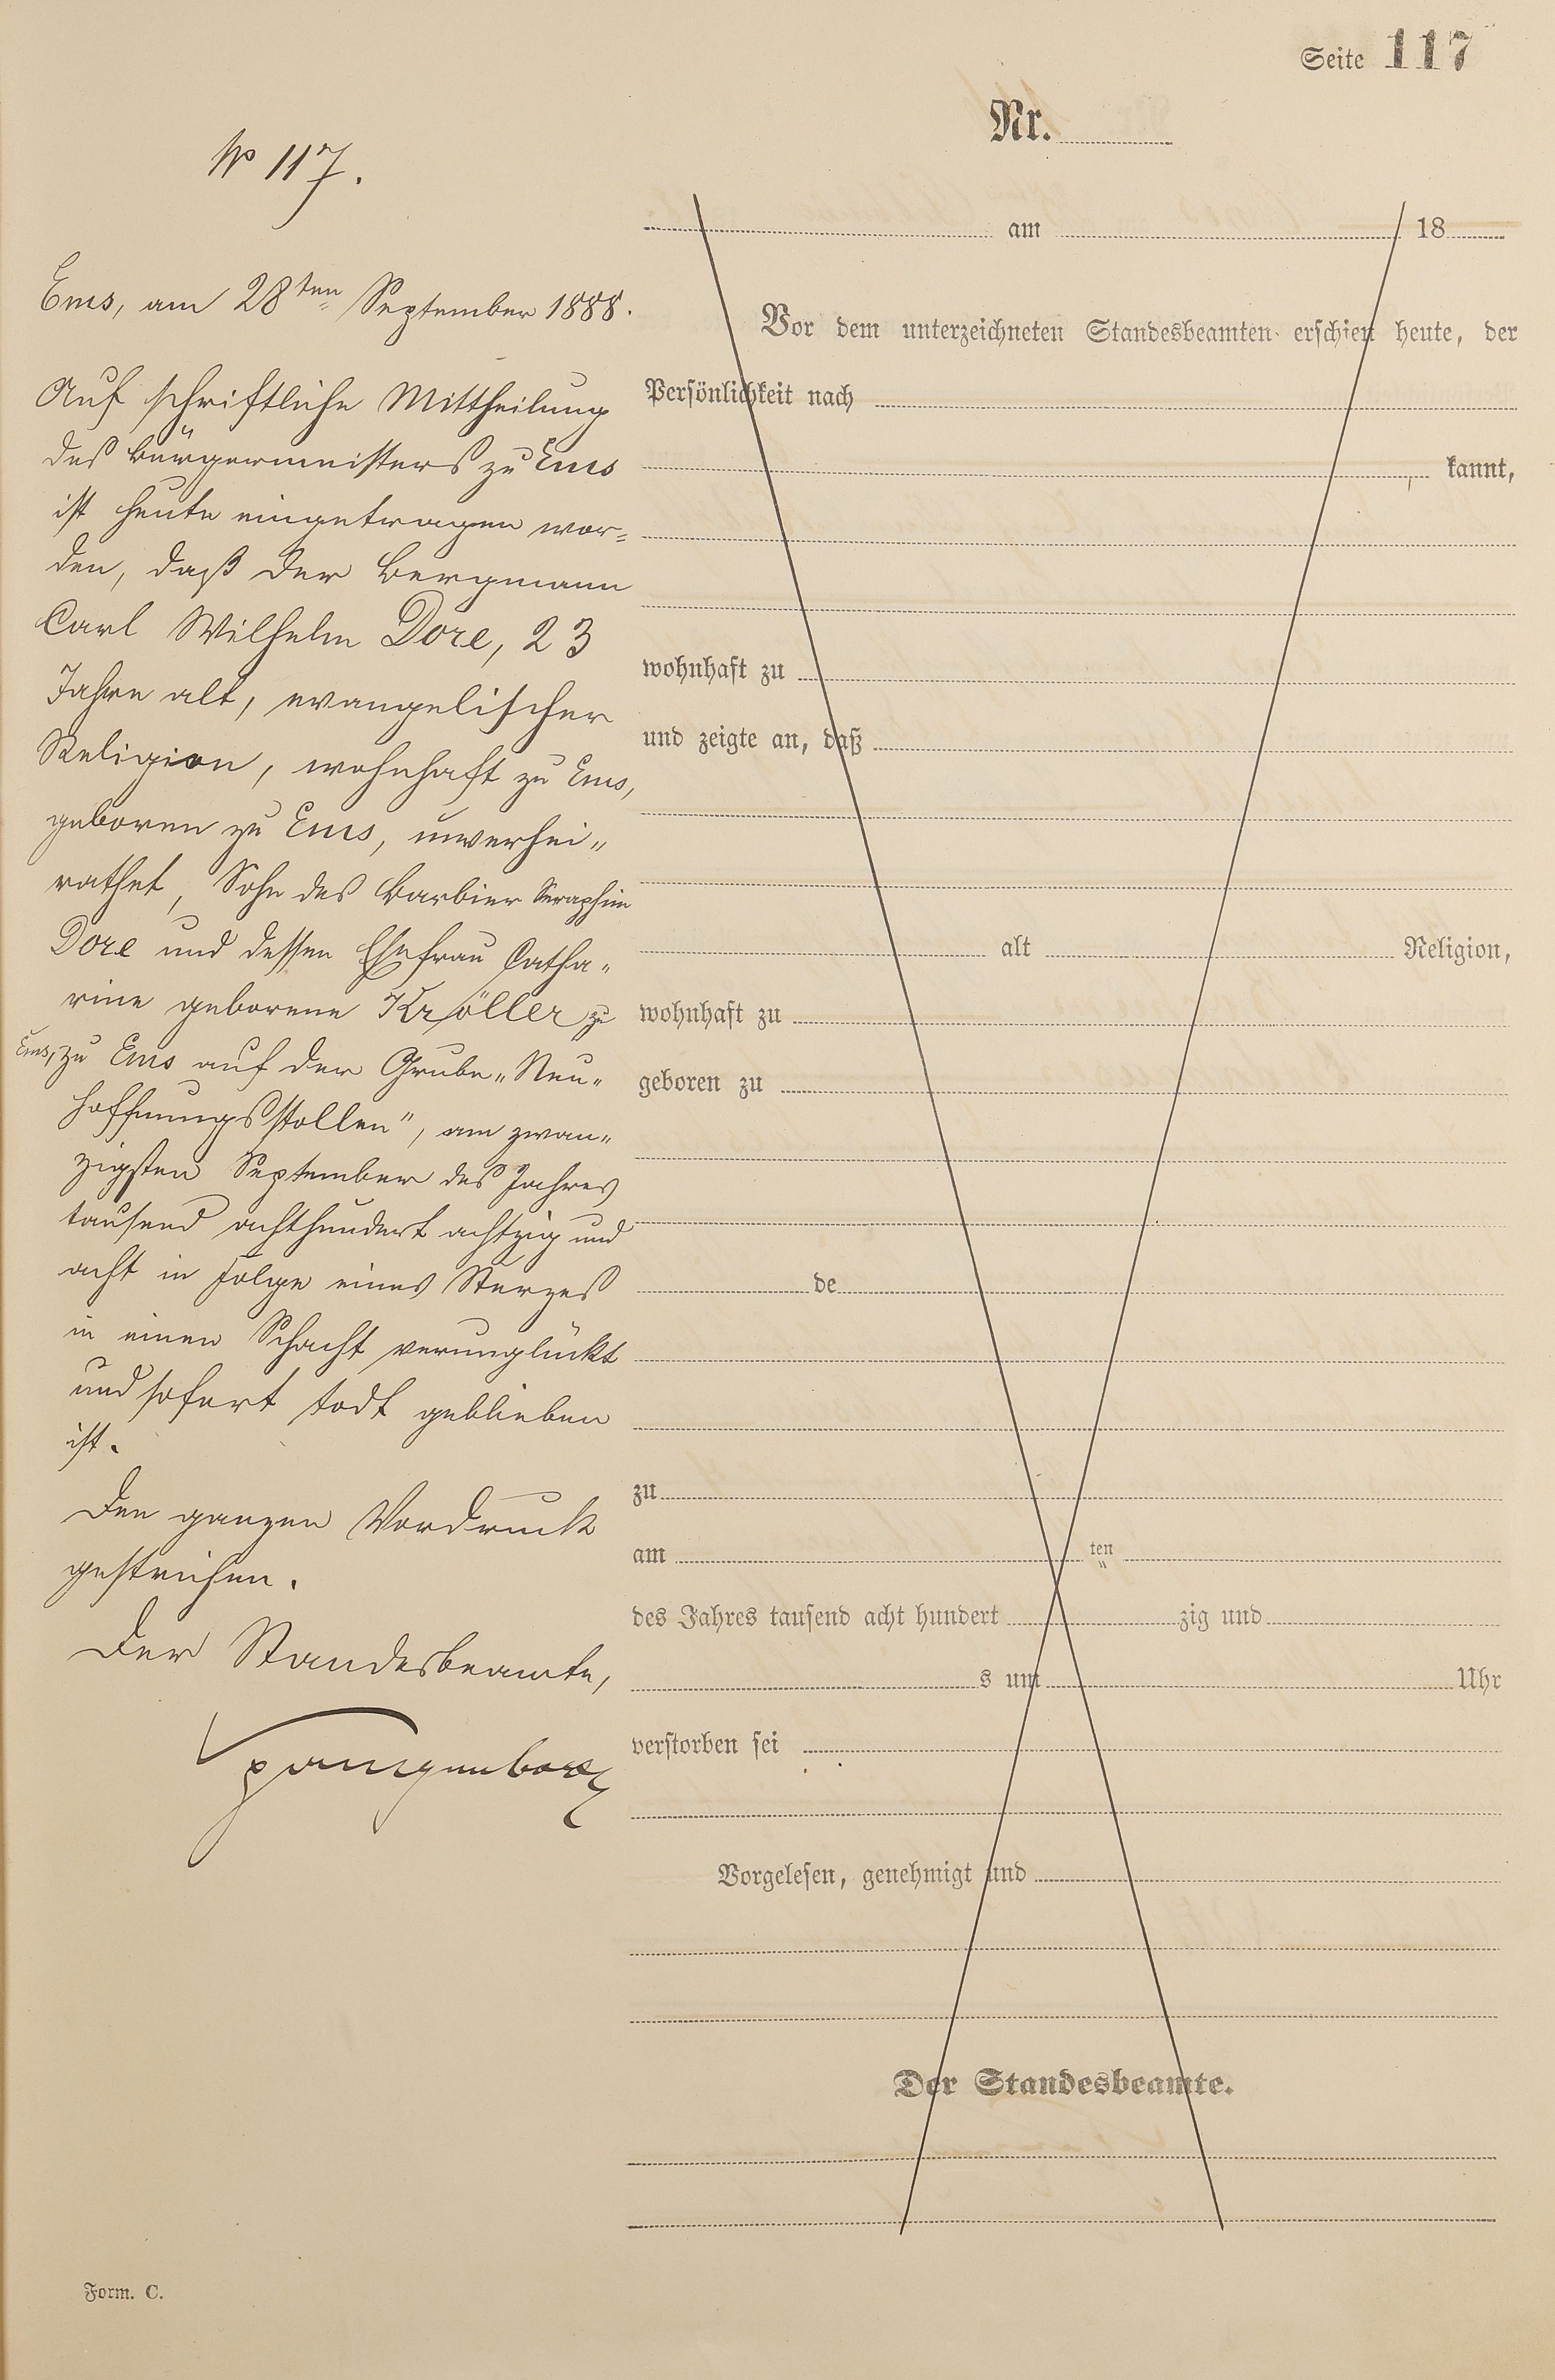 Seite 117
Nr.
№ 117.
Ems, am 28ten September 1888.
Auf schriftliche Mittheilung
des Bürgermeisters zu Ems
ist heute eingetragen wor=
den, daß der Bergmann
Carl Wilhelm Dore, 23
Jahre alt, evangelischer
Religion, wohnhaft zu Ems,
geboren zu Ems, unverhei„
rathet, Sohn des Barbier Seraphim
Dore und dessen Ehefrau Catha„
rine geborene Kröller zu
Ems, zu Ems auf der Grube „Neu„
hoffnungsstollen“, am zwan„
zigsten September des Jahres
tausend achthundert achtzig und
acht in Folge eines Sturzes
in einen Schacht verunglückt
und sofort todt geblieben
ist.
Den ganzen Vordruck
gestrichen.
Der Standesbeamte,
am 18
Vor dem unterzeichneten Standesbeamten erschien heute, der
Persönlichkeit nach
kannt,
wohnhaft zu
und zeigte an, daß
alt Religion,
wohnhaft zu
geboren zu
de
zu
am ten
des Jahres tausend acht hundert zig und
s um Uhr
verstorben sei
Vorgelesen, genehmigt und
Der Standesbeamte.
Form. C.